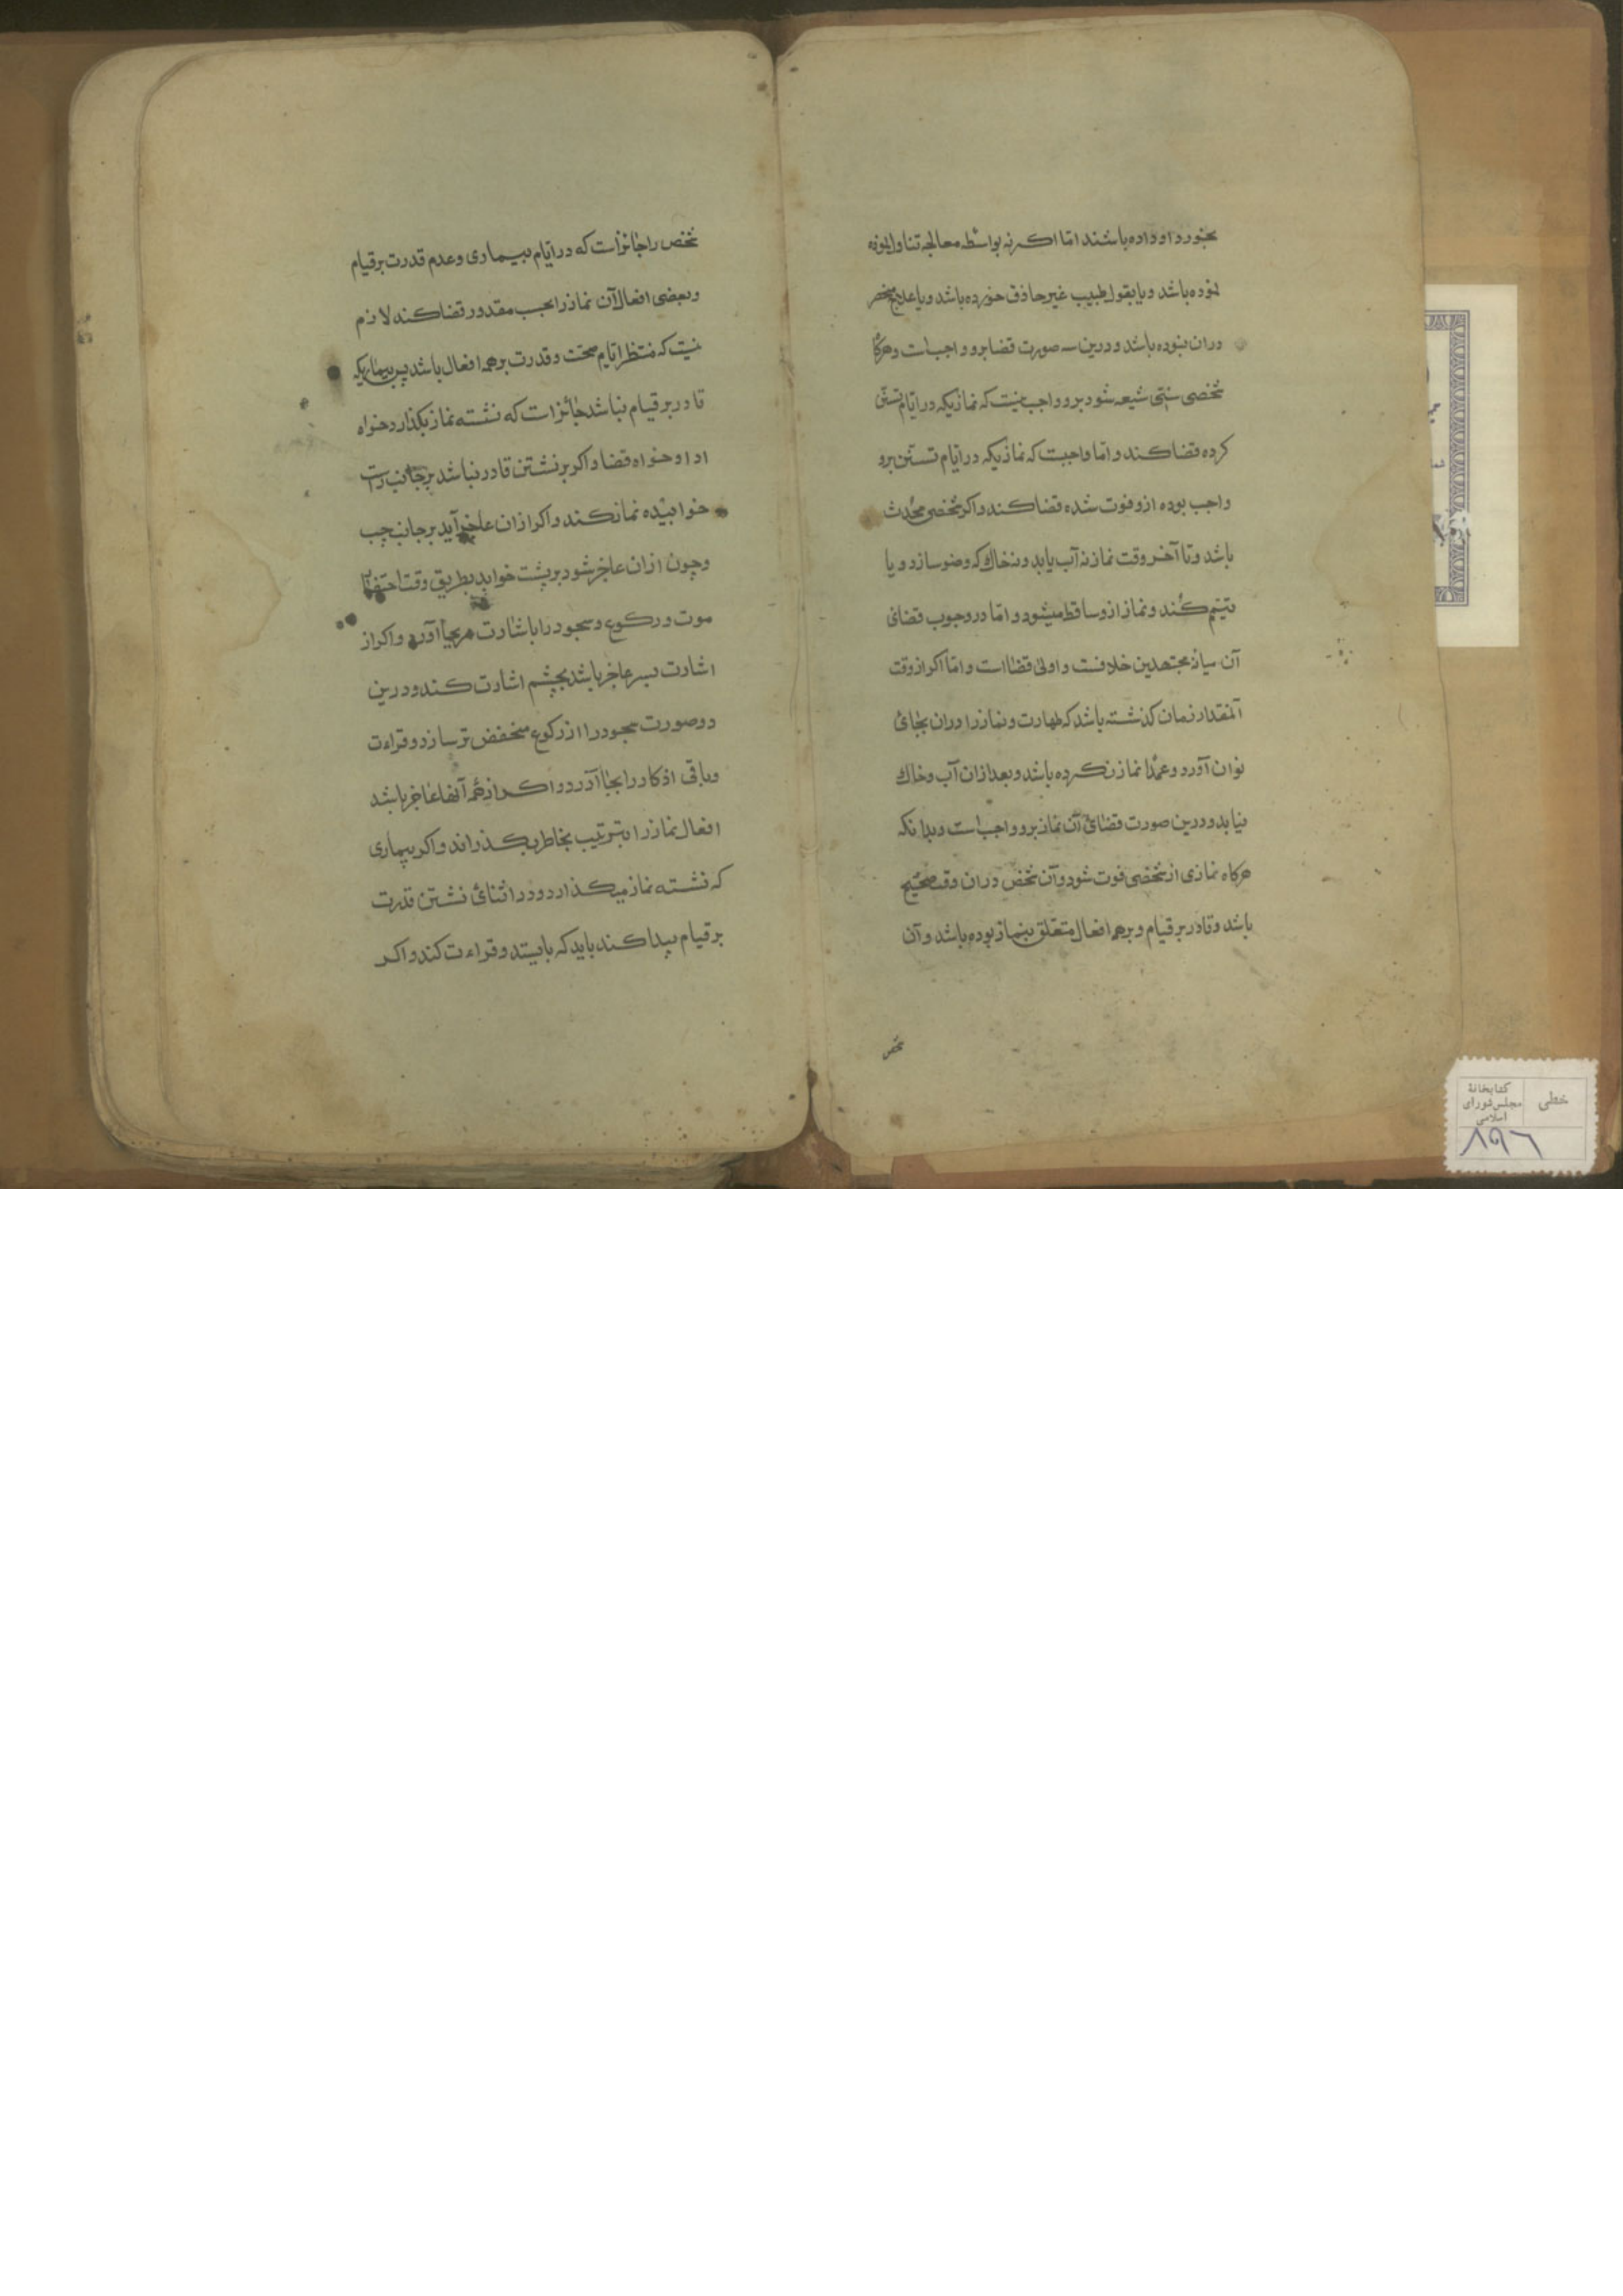 بخورد او داده باشند اما اکر نه بواسطه معالجه تناول
نموده باشد و یا بقول طبیب غیر حاذق خورده باشد و یا علاج منحصر
دران نبوده باشد و درین سه صورت قضا برو واجب است و هرکاه
شخصی سنی شیعه شود برو واجب نیست که نمازیکه در ایام تسنن
کرده قضا کند و اما واجبست که نمازیکه در ایام تسنن برو
واجب بوده ازو فوت شده قضا کند و اکر شخصی محدث
باشد و تا آخر وقت نماز نه آب یابد و نه خاک که وضو سازد و یا
تیمم کند و نماز ازو ساقط میشود و اما در وجوب قضای
آن میانه مجتهدین خلافست و اولی قضا است و اما اکر از وقت
آنمقدار زمان کذشته باشد که طهارت و نماز را دران بجای
توان آورد و عمدا نماز نکرده باشد و بعد ازان آب و خاک
نیابد و درین صورت قضای آن نماز برو واجب است و بدانکه
هرکاه نمازی از شخصی فوت شود و آن شخص دران وقت صحیح
باشد و قادر بر قیام و بر همه افعال متعلق بنماز بوده باشد و آن
شخص
شخص را جائز است که در ایام بیماری و عدم قدرت بر قیام
و بعضی افعال آن نماز را بحسب مقدور قضا کند لازم
نیست که منتظر ایام صحت و قدرت بر همه افعال باشد پس بیماریکه
قادر بر قیام نباشد جائز است که نشسته نماز بکذارد خواه
ادا و خواه قضا و اکر بر نشستن قادر نباشد بر جانب راست
خوابیده نماز کند و اکر ازان عاجز آید بر جانب چپ
و چون ازان عاجز شود بر پشت خوابد بطریق وقت احتضار
موت و رکوع و سجود را باشارت بجا آورد و اکر از
اشارت بسر عاجز باشد بچشم اشارت کند و درین
دو صورت سجود را از رکوع منخفض تر سازد و قراءت
و باقی اذکار را بجا آورد و اکر از همه آنها عاجز باشد
افعال نماز را بترتیب بخاطر بکذراند و اکر بیماری
که نشسته نماز میکذارد و در اثنای نشستن قدرت
بر قیام پیدا کند باید که بایستد و قراءت کند و اکر
خطی
کتابخانهٔ
مجلس شورای
اسلامی
۸۹۶